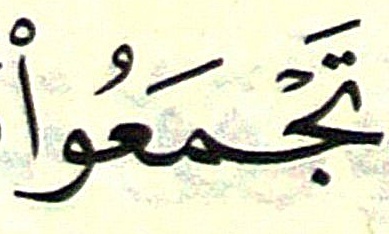 تَجْمَعُوا۟